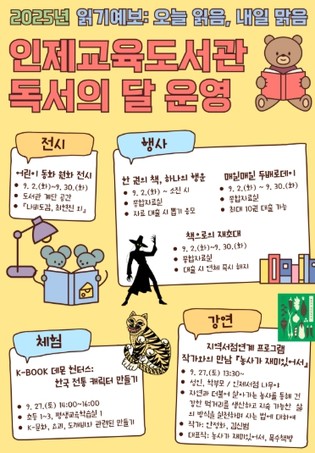 2025년 읽기예보: 오늘 읽음, 내일 맑음
인제교육도서관
독서의 달 운영
전시
어린이 동화 원화 전시
9. 2.(화)~9. 30.(화)
도서관 계단 공간
행사
한 권의 책, 하나의 행운
9. 2.(화) ~ 소진 시
종합자료실
자료 대출 시 뽑기 응모
매일매일 두배로데이
9. 2.(화) ~ 9. 30.(화)
종합자료실
최대 10권 대출 가능
책으로의 재초대
9. 2.(화)~9. 30.(화)
종합자료실
대출 시 연체 즉시 해지
체험
K-BOOK 데몬 헌터스:
한국 전통 캐릭터 만들기
9. 27.(토) 14:00~16:00
초등 1~3, 평생교육학습실 1
K-문화, 소재, 도깨비와 관련된 만들기
강연
지역서점연계 프로그램
작가와의 만남 『농사가 재미있어서』
9. 27.(토) 13:30~
성인, 학부모 / 인제서점 나무야
자연과 더불어 살아가는 농사를 통해 건
강한 먹거리를 생산하고 지속 가능한 삶
의 방식을 실천하며 사는 법에 대하여
작가: 안정화, 김신범
대표작: 농사가 재미있어서, 옥수책방